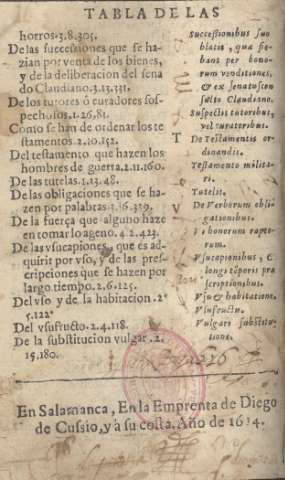 TABLA DE LAS
horros.3.8.305.
De las succesiones que se ha-
zian por venta de los bienes,
y de la deliberacion del sena
do Claudiano.3.13.331.
De los tutores ò curadores sos-
pechosos.1.26.81.
Como se han de ordenar los te
stamentos.2.10.152.
Del testamento que hazen los
hombres de guerra.2.11.160.
De las tutelas.1.13.48.
De las obligaciones que se ha-
zen por palabras.3.16.339.
De la fuerça que alguno haze
en tomar lo ageno.4.2.423.
De las vsucapiones, que es ad-
quirir por vso, y de las pres-
cripciones que se hazen por
largo tiempo.2.6.125.
Del vso y de la habitacion.2.
5.122.
Del vsufructo.2.4.118.
De la substitucion vulgar.2.
15.180.
Successionibus suo
blatis, quæ fie-
bant per bono-
rum venditiones,
& ex senatuscon
sulto Claudiano.
Suspectis tutoribus,
vel curatoribus.
T De Testamentis or-
dinandis.
Testamento milita-
ri.
Tutelis.
V De Verborum obli-
gationibus.
Vi bonorum rapto-
rum.
Vsucapionibus, &
longi tēporis præ
scriptionibus.
Vsu & habitatione.
Vsufructu.
Vulgari substitu-
tione.
En Salamanca, En la Emprenta de Diego
de Cussio, y à su costa. Año de 1614.